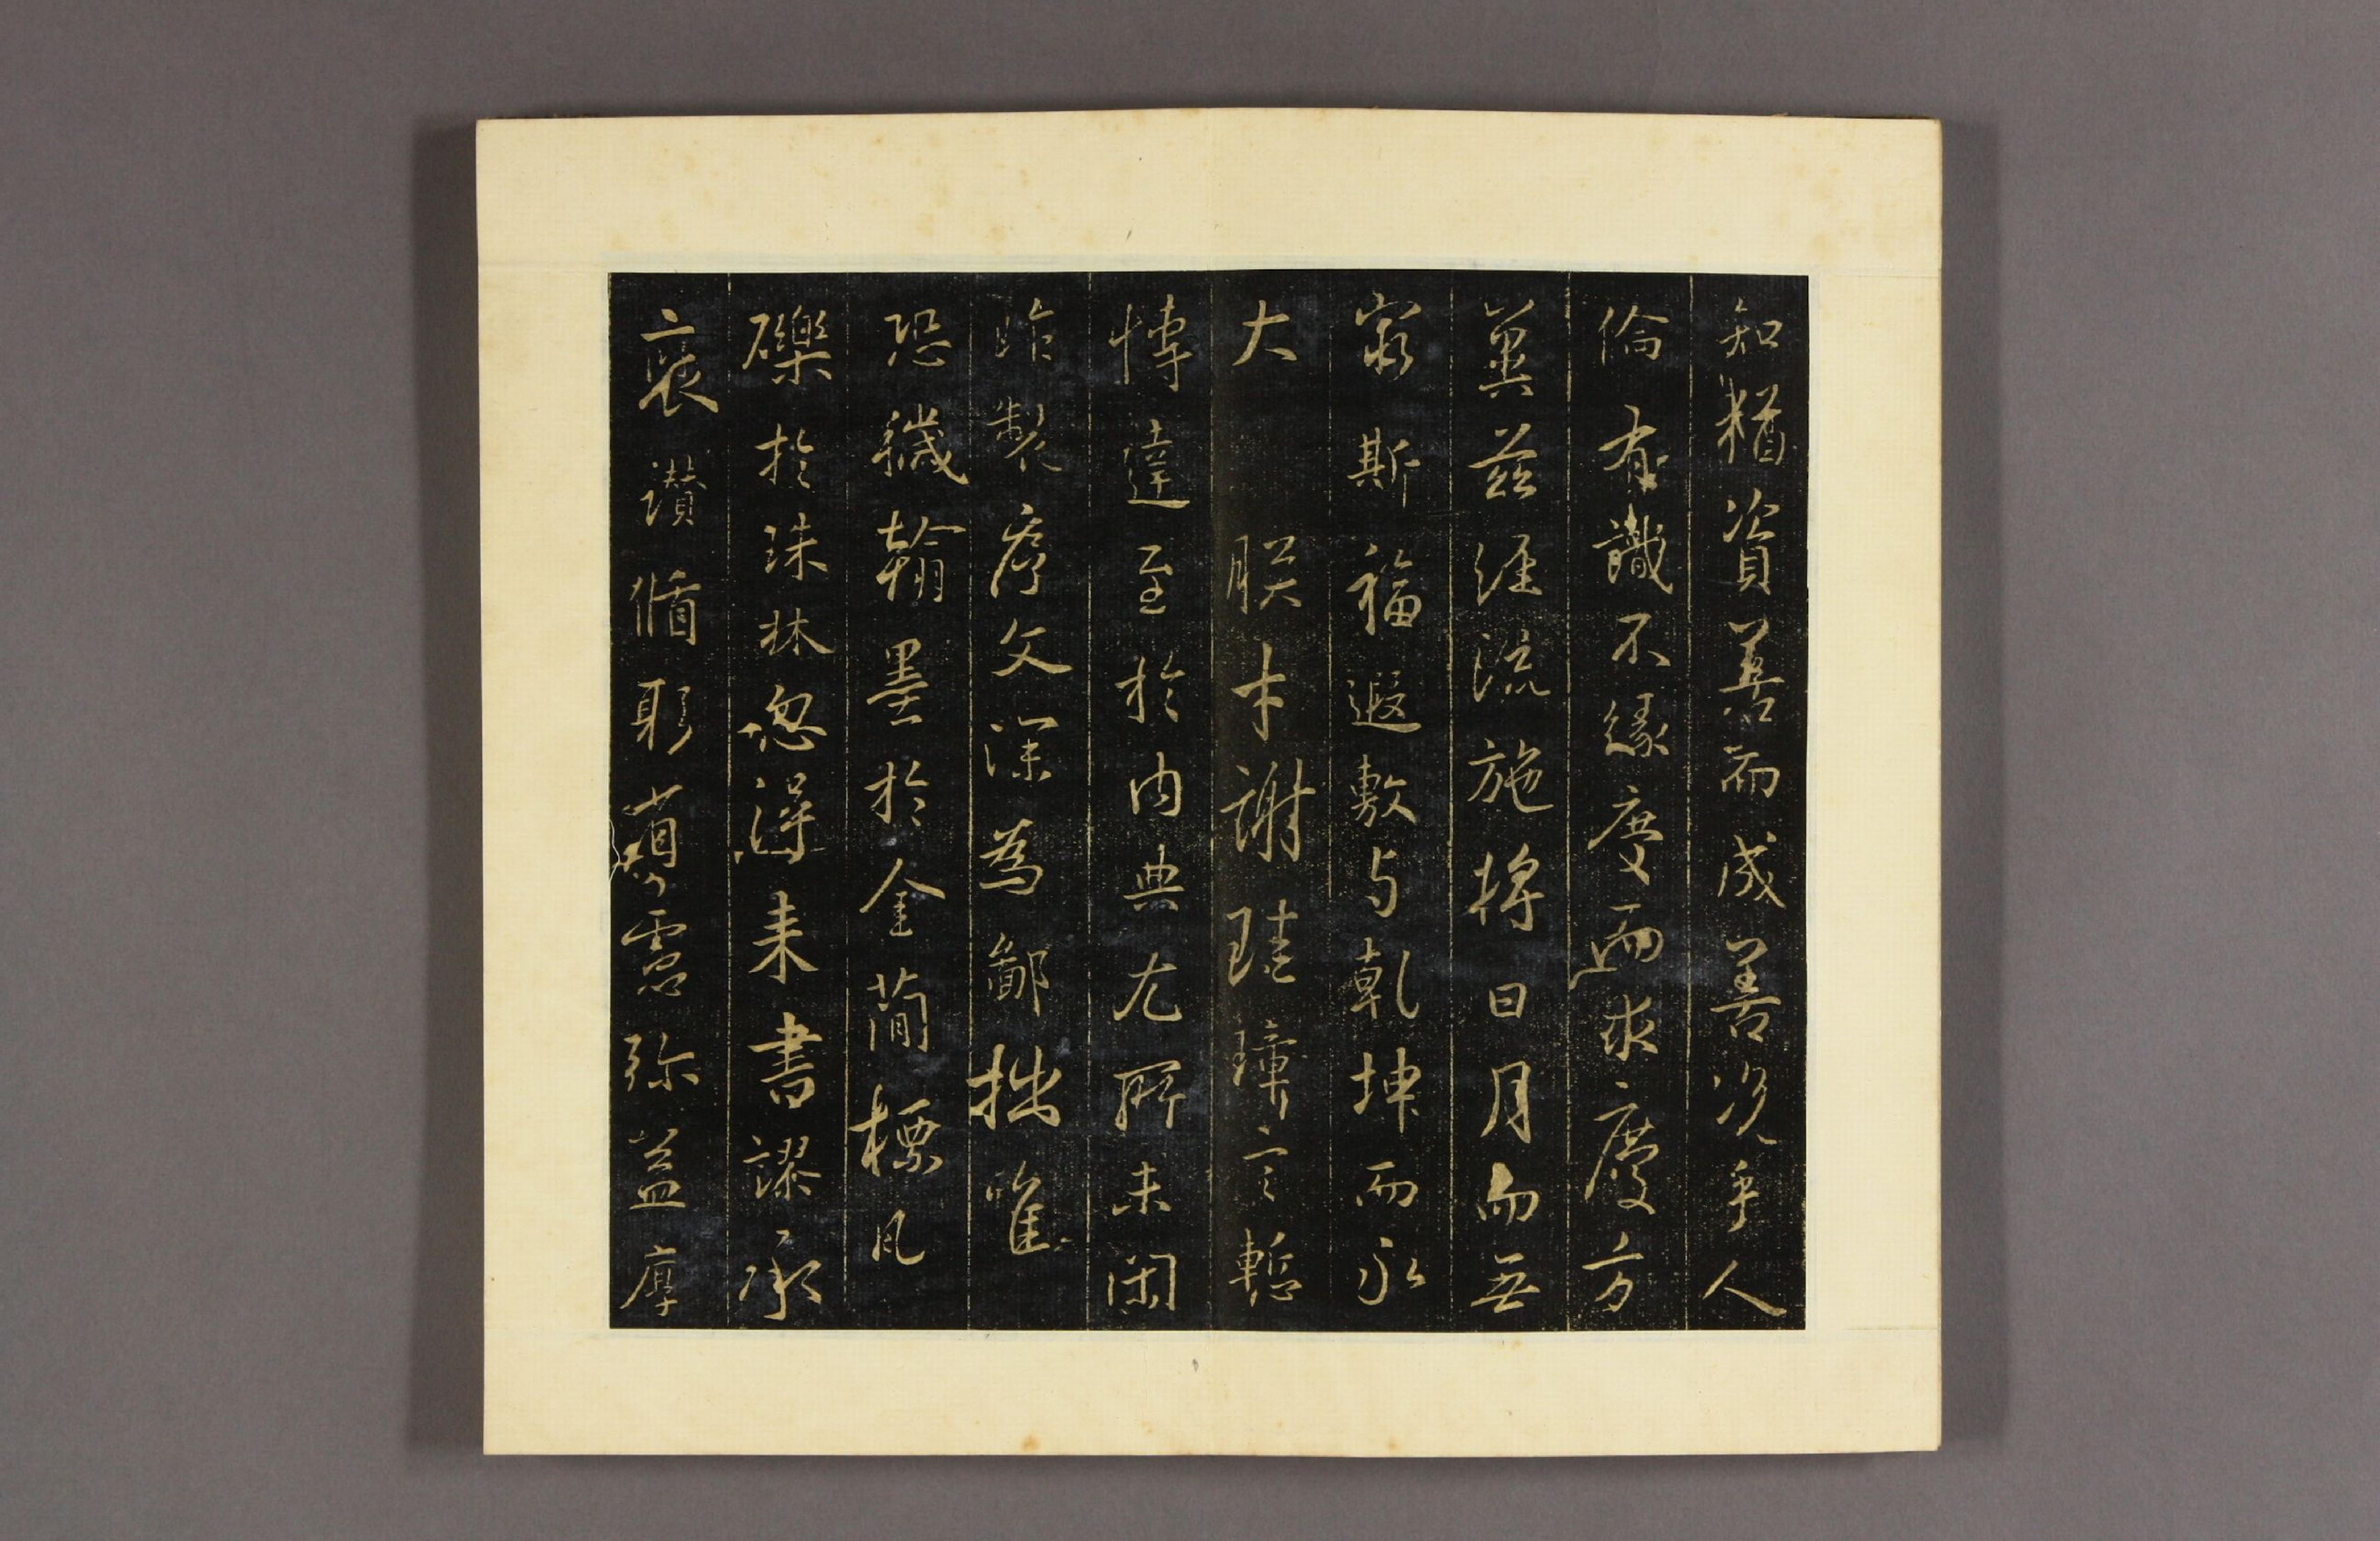 知猶資善而成善況乎人
倫有識不緣慶而求慶方
冀茲經流施將日月而無
窮斯福遐敷与乾坤而永
大朕才謝珪璋言慙
博達至於内典尤所未閑
昨製序文深為鄙拙唯
恐穢翰墨於金簡標瓦
礫於珠林忽得来書謬承
褒讃循躬省慮弥益厚